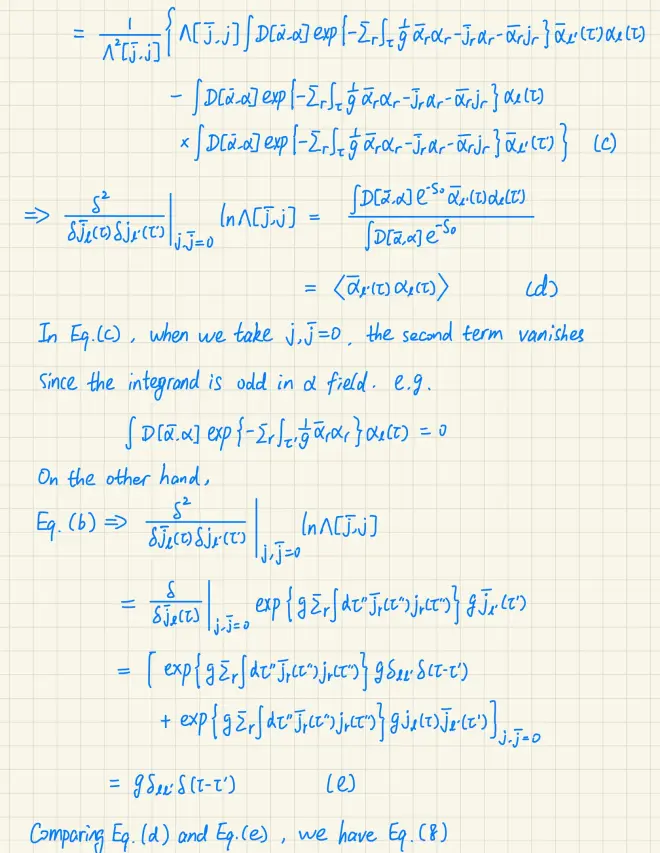 = 1/Λ²[j̄,j] { Λ[j̄,j] ∫D[ᾱ,α] exp{-Σ_r∫_τ 1/g ᾱ_rα_r - j̄_rα_r - ᾱ_rj_r} ᾱ_ℓ'(τ')α_ℓ(τ)
- ∫D[ᾱ,α] exp{-Σ_r∫_τ 1/g ᾱ_rα_r - j̄_rα_r - ᾱ_rj_r} α_ℓ(τ)
× ∫D[ᾱ,α] exp{-Σ_r∫_τ 1/g ᾱ_rα_r - j̄_rα_r - ᾱ_rj_r} ᾱ_ℓ'(τ') } (c)
⇒ δ²/δj̄_ℓ(τ)δj_ℓ'(τ') |_{j,j̄=0} ln Λ[j̄,j] = ∫D[ᾱ,α] e^{-S₀} ᾱ_ℓ'(τ)α_ℓ(τ') / ∫D[ᾱ,α] e^{-S₀}
= ⟨ᾱ_ℓ'(τ)α_ℓ(τ)⟩ (d)
In Eq.(c), when we take j,j̄=0, the second term vanishes
since the integrand is odd in α field. e.g.
∫D[ᾱ,α] exp{-Σ_r∫_τ' 1/g ᾱ_rα_r} α_ℓ(τ) = 0
On the other hand,
Eq.(b) ⇒ δ²/δj̄_ℓ(τ)δj_ℓ'(τ') |_{j,j̄=0} ln Λ[j̄,j]
= δ/δj̄_ℓ(τ) |_{j,j̄=0} exp{gΣ_r∫dτ" j̄_r(τ")j_r(τ")} g j̄_ℓ'(τ')
= [ exp{gΣ_r∫dτ" j̄_r(τ")j_r(τ")} gδ_ℓℓ' δ(τ-τ')
+ exp{gΣ_r∫dτ" j̄_r(τ")j_r(τ")} g j_ℓ(τ) j̄_ℓ'(τ') ]_{j,j̄=0}
= gδ_ℓℓ' δ(τ-τ') (e)
Comparing Eq.(d) and Eq.(e), we have Eq.(8)